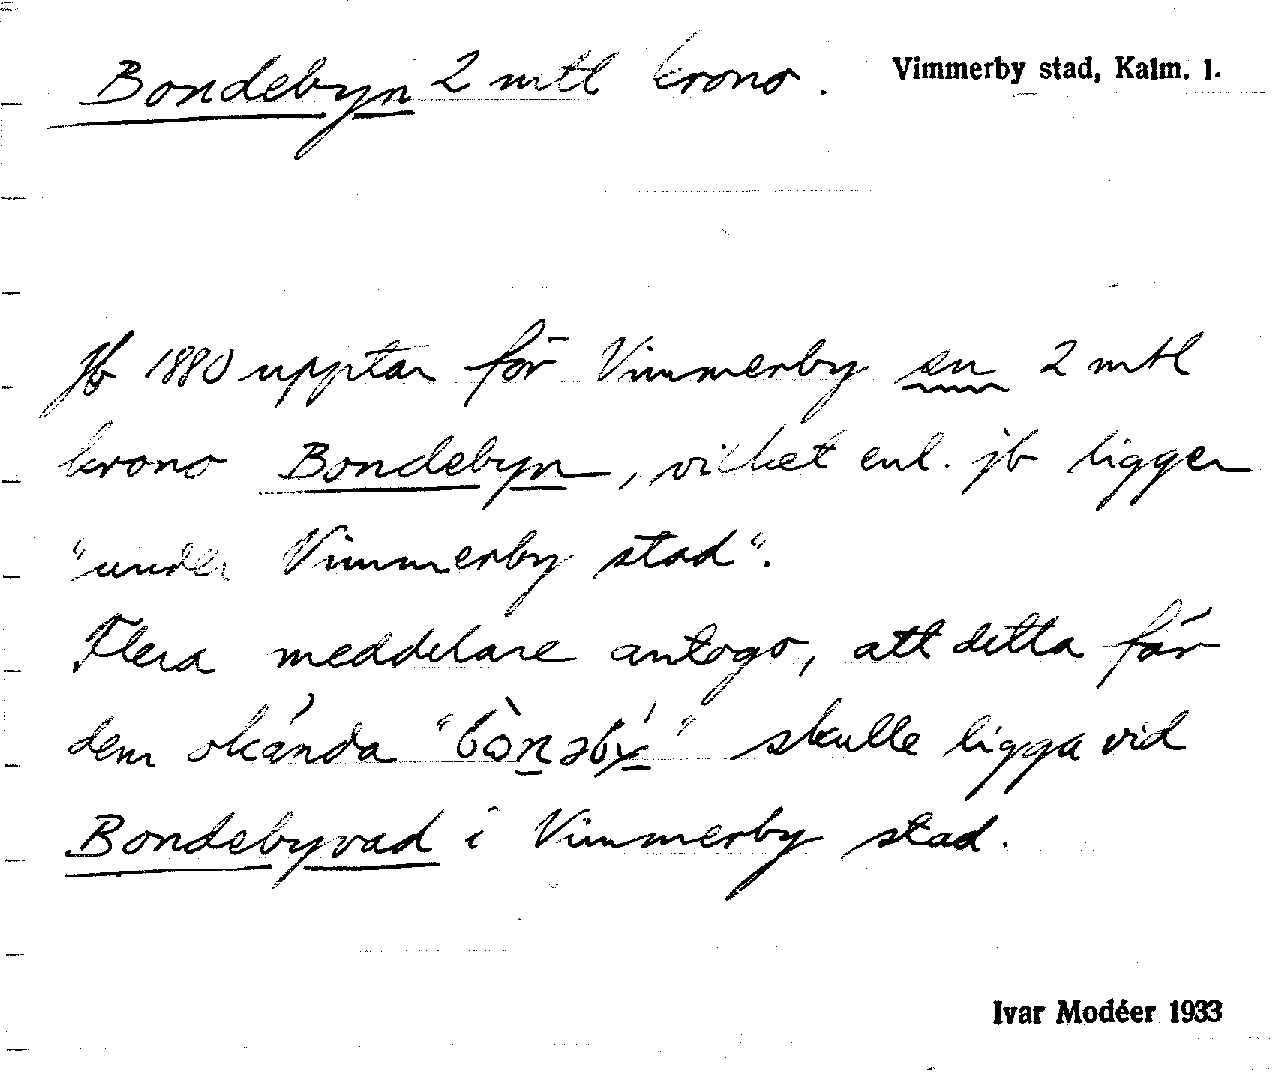 Bondebyn 2 mtl krono. Vimmerby stad, Kalm. l.
Jb 1880 upptar för Vimmerby en 2 mtl
krono Bondebyn, vilket enl. jb ligger
"under Vimmerby stad".
Flera meddelare antogo, att detta för
dem okända skulle ligga vid
Bondebyvad i Vimmerby stad.
Ivar Modéer 1933